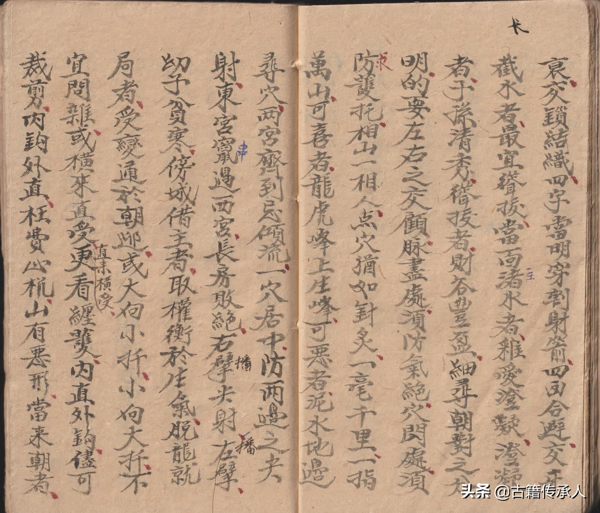 交鎖結織四字當明穿到射箭四合避交
截水者最宜聳拔當面渚水者雖愛澄凝澄凝
者子孫清秀聳拔者財谷豐盈細尋朝對之
明的要左右之交顧脉盡處須防氣絕穴閃處須
防護托相山一相人点穴猶如針灸一毫千里一指
萬山可喜者龍虎峰上生峰可惡者泥水地邊
尋穴兩宮齊到忌傾流一穴居中防兩邊之夾
射東宮竄過西宮長房敗絕右擘尖射左擘
幼子貧寒傍城借主者取權衡於生氣脫龍就
局者受變通於朝迎或大向小扦小向大扦不
直來橫受
宜閃雜或橫來直受更看纏護內直外鈎儘可
裁剪內鈎外直枉費心机山有惡形當来朝者
头条 @古籍传承人